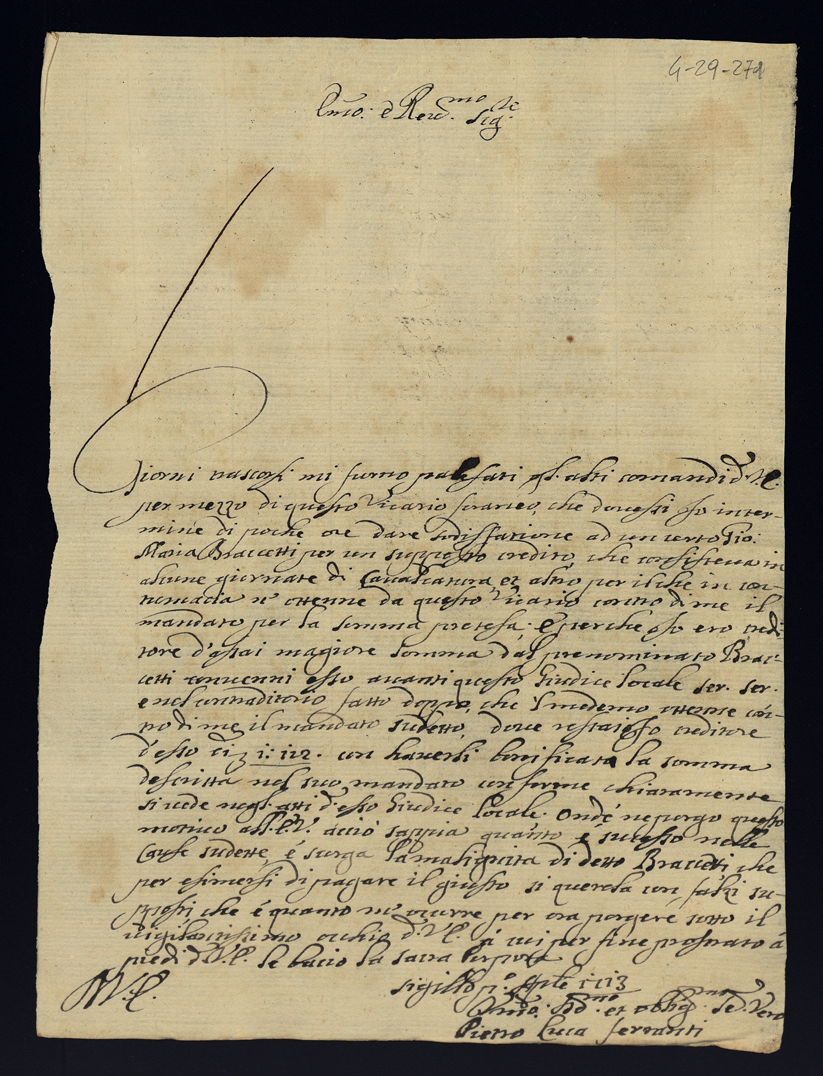 4-29-279
Em̃o: e Reu.mo Sig.re
Giorni trascorsi mi furno palesati gl'alti comandi d V.E.
per mezzo di questo Vicario foraneo, che douessi Io in ter-
mine di poche ore dare sodisfatione ad un certo Gio:
Maria Braccetti per un supposto credito, che consisteua in
alcune giornate di Caualcatura, et altro per il che in con-
tumacia n'ottenne da questo Vicario contro di me il
mandato per la somma pretesa, E perche Io ero credi-
tore d'assai magiore somma dal prenominato Brac-
cetti conuenni esso auanti questo Giudice locale ser: ser:
e nel contraditorio fatto doppo, che l'medemo ottenne con-
tro di me il mandato sudetto, doue restai Io creditore
d'esso di con hauerli bonificata la somma
descritta nel suo mandato conforme chiaramente
si uede negl'atti d'esso Giudice locale. Onde ne porgo questo
motiuo all'E.V. acciò sappia quanto è sucesso nelle
Cause sudette, é surga la malignità di detto Braccetti che
per esimersi di pagare il giusto si querela con falzi su-
pposti, che é quanto m'ocurre per ora porgere sotto il
uigilantissimo occhio d V.E. a cui per fine prostrato à
piedi d V.E. le bacio la sacra Porpora
Sigillo p.o Aple 1713
D.V.E.
Vm̃o: et oblig.mo Se.re Vero
Pietro Luca Ferranti